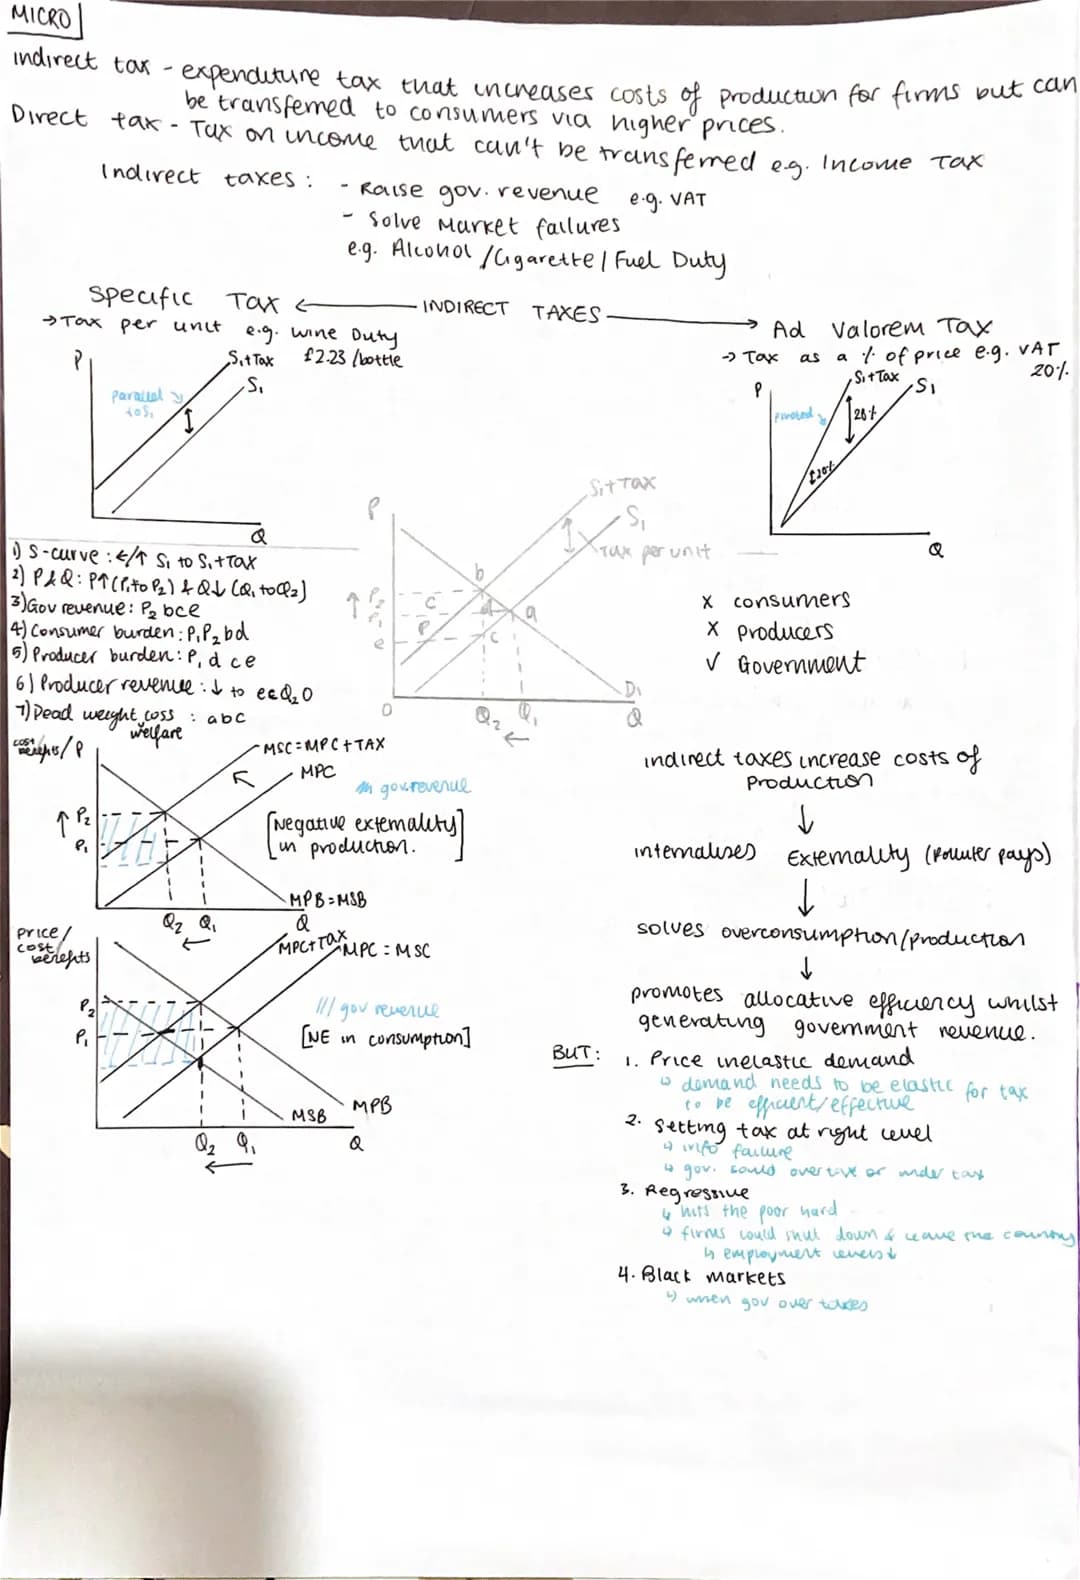 MICRO
indirect tax - expenditure tax that increases costs of production for firms but can
be transferred to consumers via higher prices.
Direct tax - Tax on income that can't be transferred e.g. Income Tax
Indirect taxes : - Raise gov. revenue e.g. VAT
- Solve Market failures
e.g. Alcohol /Cigarette / Fuel Duty
Specific Tax ← INDIRECT TAXES → Ad Valorem Tax
→ Tax per unit e.g. wine Duty
£2.23 /bottle
→ Tax as a % of price e.g. VAT
20%
P
S₁+Tax
S₁
parallel
to S₁
Q
P
S₁+Tax
S₁
pivoted
20%
20%
Q
P
S₁+Tax
S₁
Tax per unit
b
↑ P₂
P₁
e
c
P
d
a
c
D₁
0
Q₂ Q₁
Q
←
1) S-curve : ←/↑ S₁ to S₁+Tax
2) P & Q : P↑ (P₁ to P₂) & Q↓ (Q₁ to Q₂)
3) Gov revenue : P₂ bce
4) Consumer burden : P₁P₂bd
5) Producer burden : P₁ d ce
6) Producer revenue : ↓ to ecQ₂0
7) Dead weight loss : abc
welfare
X consumers
X producers
✓ Government
cost/
benefits/P
MSC=MPC+TAX
MPC
/// gov.revenue
[Negative externality
in production.]
↑ P₂
P₁
MPB=MSB
Q₂ Q₁
Q
←
Price/
cost/
benefits
MPC+Tax
MPC = MSC
/// gov revenue
[NE in consumption]
P₂
P₁
MSB
MPB
Q₂ Q₁
Q
←
indirect taxes increase costs of
production
↓
internalises Externality (Polluter pays)
↓
solves overconsumption/production
↓
promotes allocative efficiency whilst
generating government revenue.
BUT : 1. Price inelastic demand
↳ demand needs to be elastic for tax
to be efficient/effective
2. Setting tax at right level
↳ info failure
↳ gov. could over tax or under tax
3. Regressive
↳ hits the poor hard
↳ firms could shut down & leave the country
↳ employment levels ↓
4. Black markets
↳ when gov over taxes